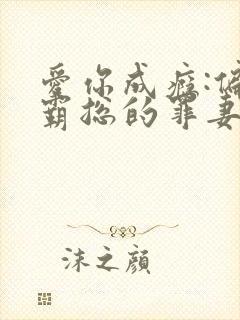 爱你成瘾:偏
霸总的罪妻
沫之颜